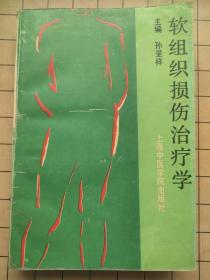 软组织损伤治疗学
主编 孙呈祥
上海中医学院出版社